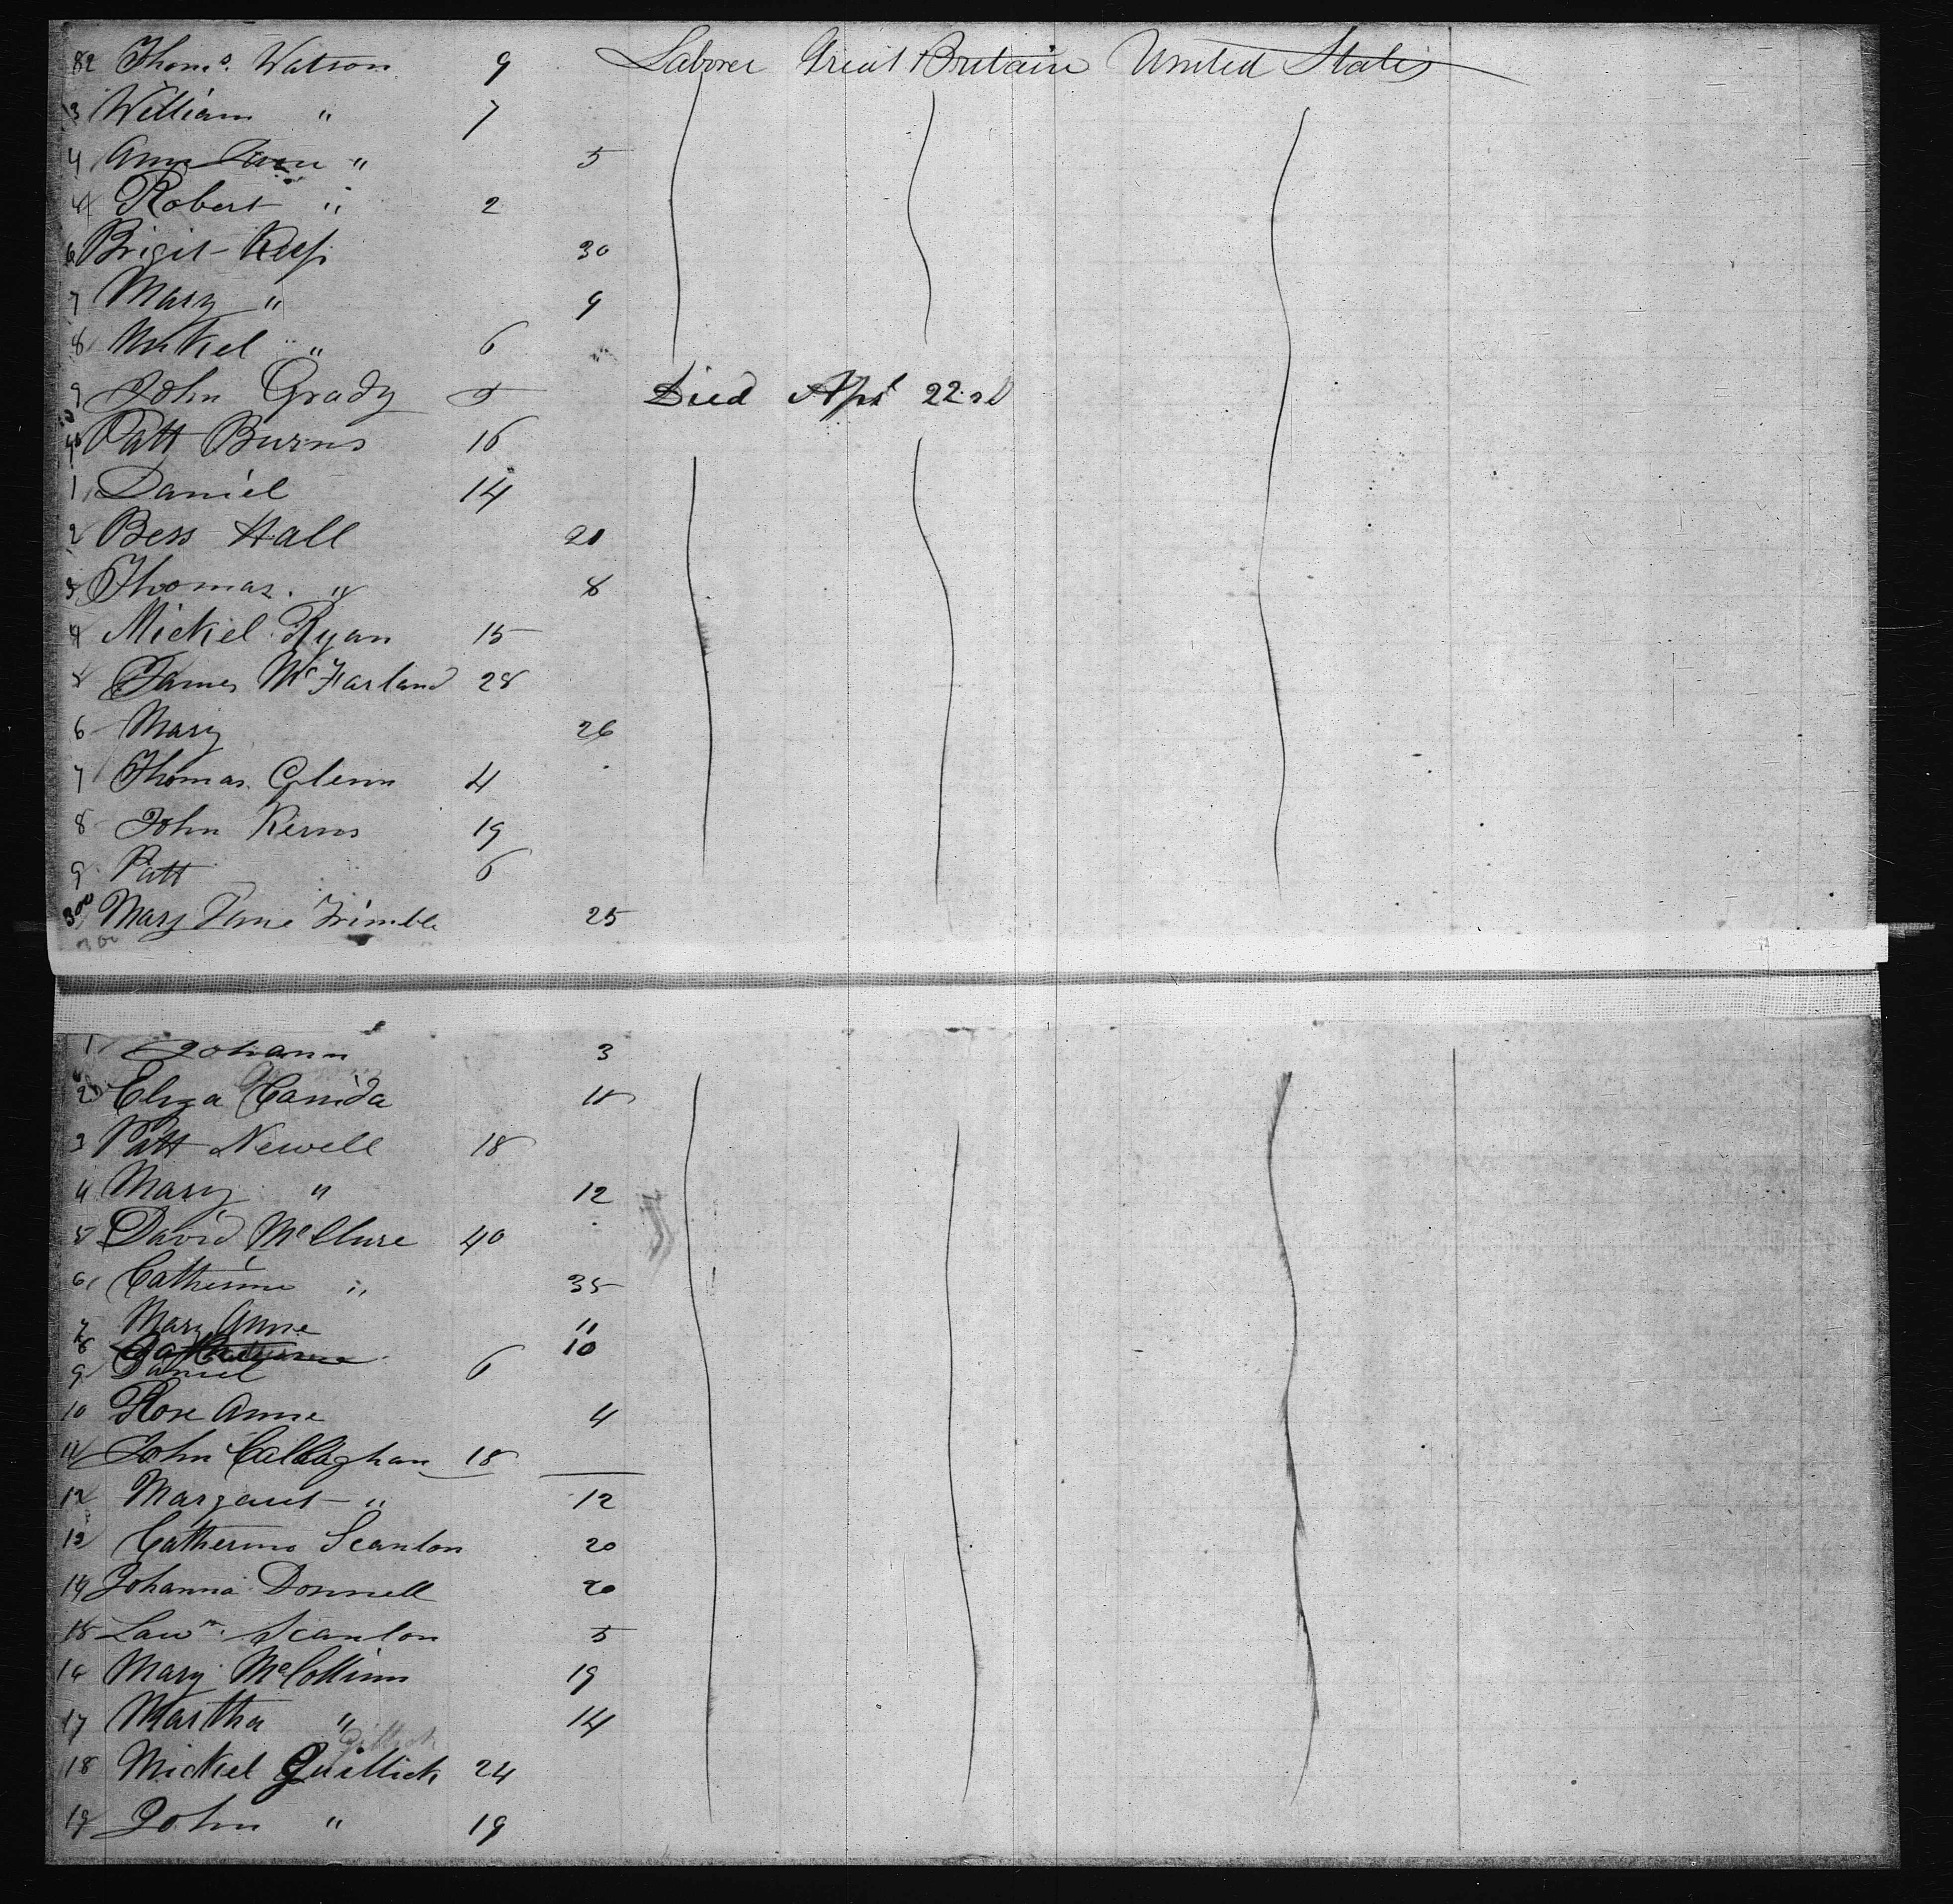 82 Thom.s Watson 9 Laborer Great Britain United States
3 William " 7
4 Ann Jane " 5
4 Robert " 2
6 Brigit Keep 30
7 Mary " 9
8 Mikel " 6
9 John Grady 5 Died Apl 22nd
Patt Burns 16
1 Daniel 14
2 Bess Hall 20
3 Thomas. " 8
4 Mickel Ryan 15
5 James McFarland 28
6 Mary 26
7 Thomas Glenn 4
8 John Kerns 19
9 Patt 6
300 Mary Jane Trimble 25
300
1 Johann 3
2 Eliza Canida 11
3 Patt Newell 18
4 Mary " 12
5 David McClure 40
6 Catherine " 35
7 Mary Anne 11
8 Catherine 10
9 Daniel 6
10 Rose Anne 4
11 John Callaghan 18
12 Margaret " 12
13 Catherine Scanlon 20
14 Johanna Donnell 20
15 Lawn. Scanlon 5
16 Mary McCollinn 19
17 Martha " 14
Gillick
18 Mickel Guillick 24
19 John " 19